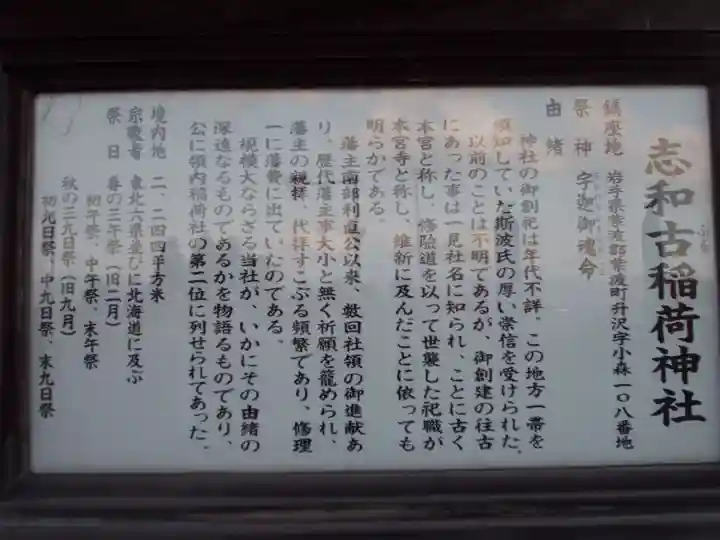 志和古稲荷神社
ふる
鎮座地 岩手県紫波郡紫波町升沢字小森一〇八番地
祭神 宇迦御魂命
由緒
神社の御創祀は年代不詳、この地方一帯を
領知していた斯波氏の厚い崇信を受けられた。
以前のことは不明であるが、御創建の往古
にあった事は一見社名に知られ、ことに古く
本宮と称し、修験道を以って世襲した祀職が
本宮寺と称し、維新に及んだことに依っても
明らかである。
藩主南部利直公以来、数回社領の御進献あ
り、歴代藩主事大小と無く祈願を籠められ、
藩主の親拝、代拝すこぶる頻繁であり、修理
一に藩費に出ていたのである。
規模大ならざる当社が、いかにその由緒の
深遠なるものであるかを物語るものであり、
公に領内稲荷社の第二位に列せられてあった。
境内地 二、二四四平方米
崇敬者 東北六県並びに北海道に及ぶ
祭日 春の三午祭(旧二月)
初午祭、中午祭、末午祭
秋の三九日祭(旧九月)
初九日祭、中九日祭、末九日祭